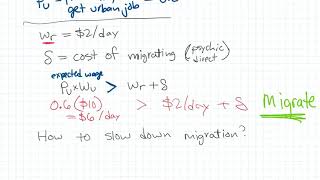 get urban job
Wr = $2/day
δ = cost of migrating (psychic
direct)
expected wage
Pu x Wu > Wr + δ
0.6($10) > $2/day + δ
= $6/day
Migrate
How to slow down migration?